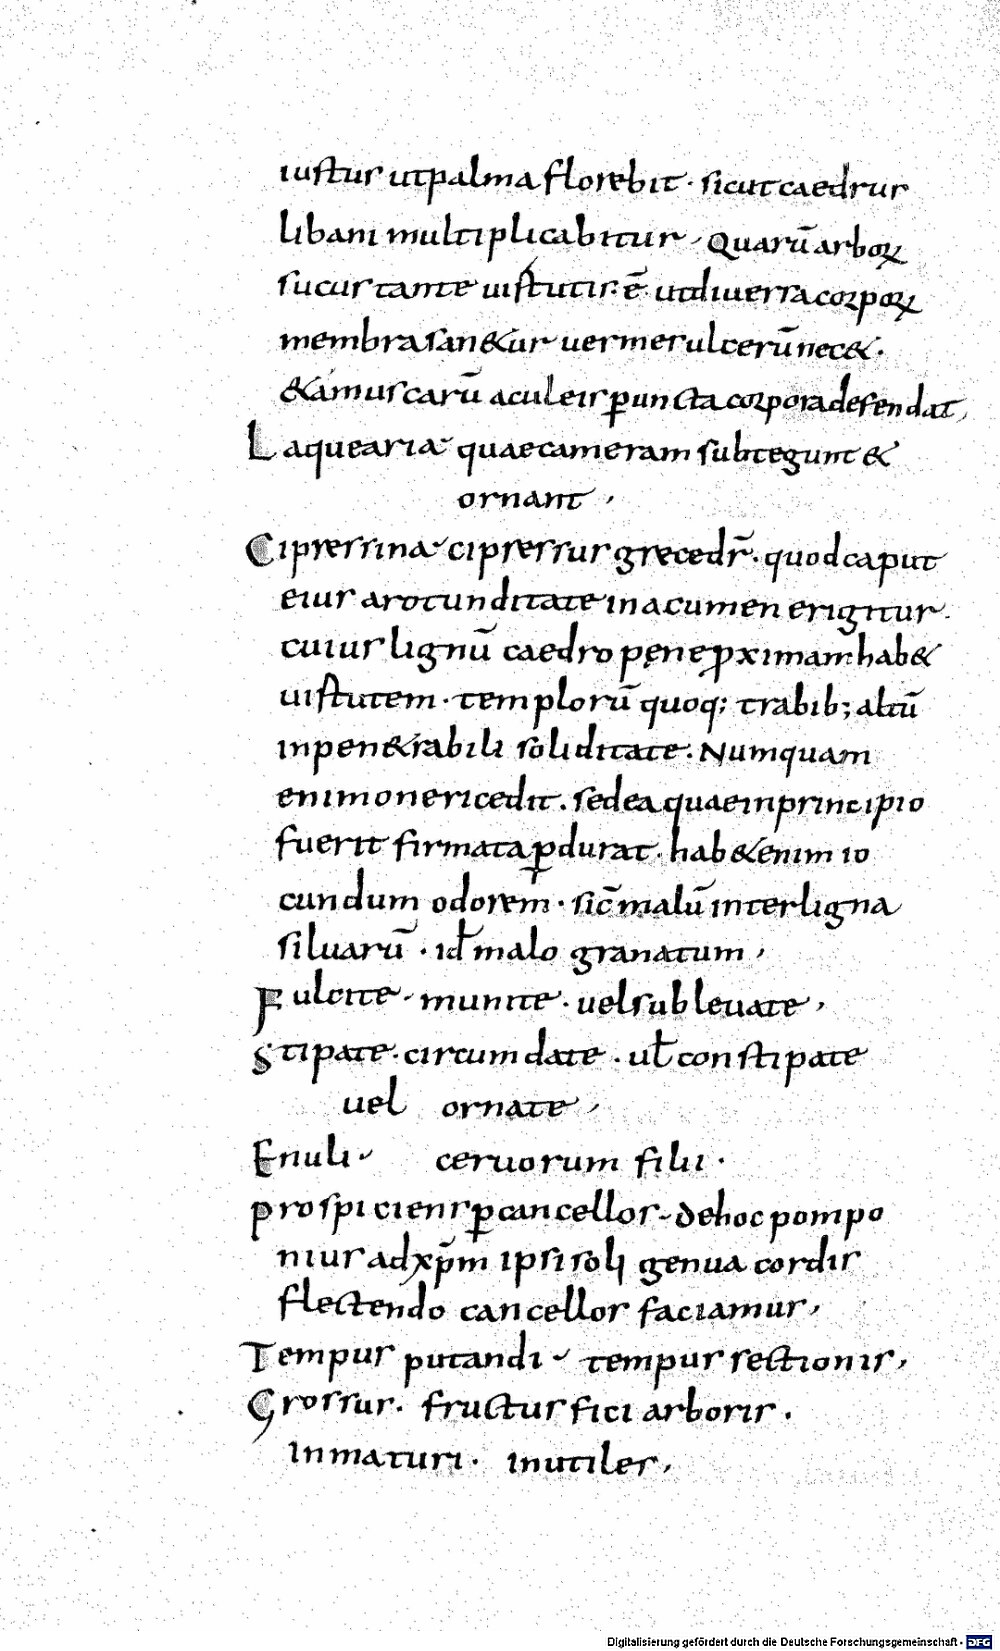 iustus utpalma florebit · sicut caedrus
libani multiplicabitur · Quarū arborꝝ
sucus tante uirtutis · ē utdiuersa corporꝝ
membra san&ur uermes ulcerū nec& ·
&a muscarū aculeis ꝑuncta corpora defendat,
Laquearia quae cameram subtegunt &
ornant ,
Cipressina cipressus grece dr̄ · quod caput
eius arotunditate in acumen erigitur ·
cuius lignū caedro pęne ꝓximam hab&
uirtutem · templorū quoq; trabib; altū
inpen&rabili soliditate · Numquam
enim oneri cedit · sed ea quae inprincipio
fuerit firmata ꝑdurat · hab& enim io
cundum odorem · sic̄ malū inter ligna
siluarū · id̄ malo granatum ,
Fulcite · munite · uel subleuate ,
Stipate · circumdate · ul̄ constipate
uel ornate ,
Enuli · ceruorum filii ·
prospiciens ꝑ cancellos · dehoc pompo
nius ad xp̄m ipsi soli genua cordis
flectendo cancellos faciamus ,
Tempus putandi · tempus sectionis ,
Grossus · fructus fici arboris ·
inmaturi · inutiles ,
Digitalisierung gefördert durch die Deutsche Forschungsgemeinschaft · DFG